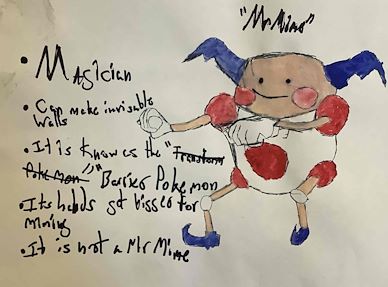 "Mr Mime"
• Magician
• Can make invisable
walls
• It is know as the "Transform
Pokemon" "Barrier Pokemon
• Its hands get bigger for
miming
• It is not a Mr Mime